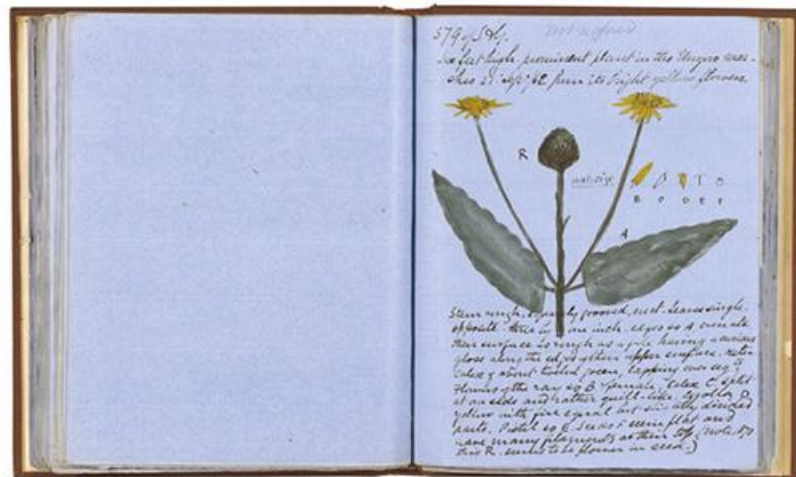 579 of S. Hy. not figured
Six feet high, prominent plant in the Unyoro mar-
shes 21st Sept/62 from its bright yellow flowers.
R
nat. size
B C D E F
A
Stem rough, grooved, erect. Leaves single,
opposite three by one inch. edges so A crenate
their surface is rough as a file having a curious
gloss along the edges of their upper surface.
Calex of about twelve green, lapping
Flowers of the ray so B female, calex C, split
at one side and rather quill-like, corolla D
yellow with five equal but divided
parts. Pistil so E. Seeds F seem flat and
have many filaments at their top. (note
this R. seems to be flower in seed.)